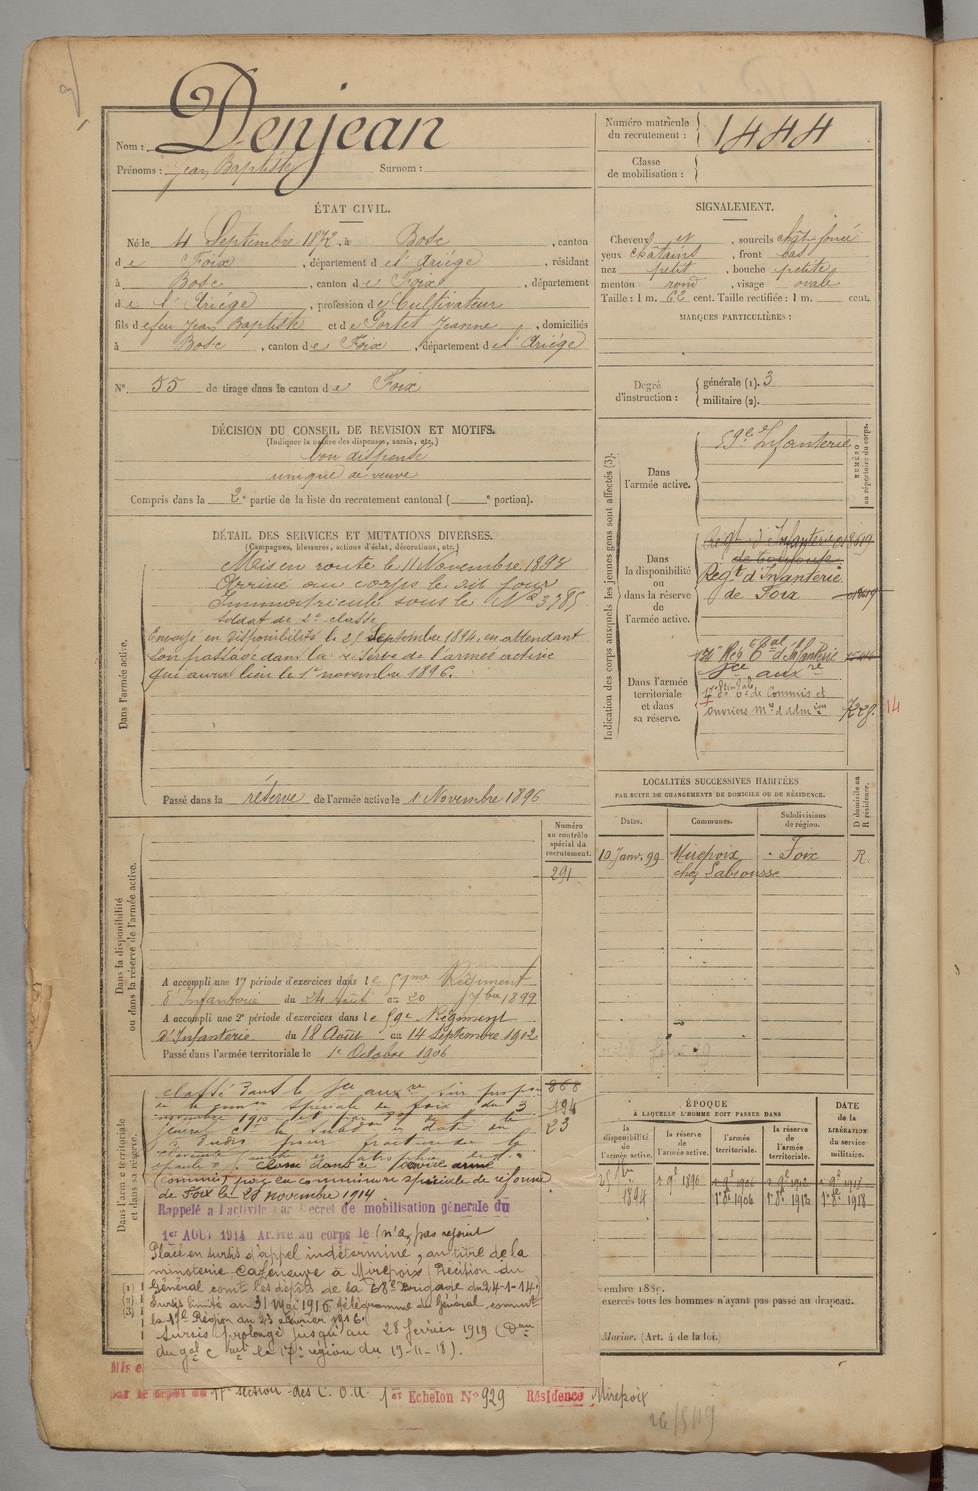 Nom : Denjean
Prénoms : Jean Baptiste Surnom :
Numéro matricule du recrutement : 1444
Classe de mobilisation :
ÉTAT CIVIL.
Né le 4 Septembre 1872, à Bosc, canton
de Foix, département de l'Ariège, résidant
à Bosc, canton de Foix, département
de l'Ariège, profession de Cultivateur
fils de feu Jean Baptiste et de Portes Jeanne, domiciliés
à Bosc, canton de Foix, département de l'Ariège
N° 55 de tirage dans le canton de Foix
SIGNALEMENT.
Cheveux et, sourcils chât. foncé
yeux châtains, front bas
nez petit, bouche petite
menton rond, visage ovale
Taille : 1 m. 62 cent. Taille rectifiée : 1 m. cent.
MARQUES PARTICULIÈRES :
Degré d'instruction : générale (1). 3
militaire (2).
DÉCISION DU CONSEIL DE REVISION ET MOTIFS.
(Indiquer la nature des dispenses, sursis, etc.)
bon dispensé
unique de veuve
Compris dans la 2e partie de la liste du recrutement cantonal ( e portion).
DÉTAIL DES SERVICES ET MUTATIONS DIVERSES.
(Campagnes, blessures, actions d'éclat, décorations, etc.)
Dans l'armée active.
Mis en route le 11 Novembre 1893
Arrivé au corps le dit jour
Immatriculé sous le No 3785
soldat de 2e classe
Envoyé en disponibilité le 25 Septembre 1894, en attendant
son passage dans la réserve de l'armée active
qui aura lieu le 1er novembre 1896.
Passé dans la réserve de l'armée active le 1 Novembre 1896
Indication des corps auxquels les jeunes gens sont affectés (3).
NUMÉRO au répertoire du corps.
Dans l'armée active.
59e d'Infanterie
Dans la disponibilité ou dans la réserve de l'armée active.
Regt d'Infanterie
de Toulouse
Regt d'Infanterie
de Foix
Dans l'armée territoriale et dans sa réserve.
Sce auxre
de Commis et
ouvriers mres d'admon
14
LOCALITÉS SUCCESSIVES HABITÉES
PAR SUITE DE CHANGEMENTS DE DOMICILE OU DE RÉSIDENCE.
Dates. Communes. Subdivisions de région. D domicile ou R résidence.
10 Janv. 99 Mirepoix Foix R.
chez Labrousse
Dans la disponibilité ou dans la réserve de l'armée active.
Numéro au contrôle spécial du recrutement.
291
A accompli une 1re période d'exercices dans le 59me Régiment
d'Infanterie du 24 Août au 20 7bre 1899
A accompli une 2e période d'exercices dans le 59e Régiment
d'Infanterie du 18 Août au 14 Septembre 1902
Passé dans l'armée territoriale le 1er Octobre 1906
Dans l'armée territoriale et dans sa réserve.
868
194
23
classé dans le Sce auxre sur propon
de la comon spéciale de Foix du 3
novembre 1910
classé dans le service armé
(commis) par la commission spéciale de réforme
de Foix le 28 novembre 1914.
Rappelé à l'activité par Décret de mobilisation génerale du
1er AOUT 1914 Arrivé au corps le (n'a pas rejoint
Placé en sursis d'appel indéterminé, au titre de la
minoterie Cazeneuve à Mirepoix (Décision du
Général comt les dépôts de la 68e Brigade du 24-1-14.
Sursis limité au 31 Mai 1916 télégramme du Général commt
la 17e Région du 23 février 1916.
Sursis prolongé jusqu'au 28 février 1919 (D
du gal C mt la 17e région du 19-11-18).
ÉPOQUE
À LAQUELLE L'HOMME DOIT PASSER DANS
la disponibilité de l'armée active. la réserve de l'armée active. l'armée territoriale. la réserve de l'armée territoriale.
DATE de la LIBÉRATION du service militaire.
1894 1896 1906 1912 1918
(1)
(2)
(3)
exercés tous les hommes n'ayant pas passé au drapeau.
Marine. (Art. 4 de la loi.)
Mis e
par le dépôt du 17e section des C. O. A. 1er Echelon No 929 Résidence Mirepoix